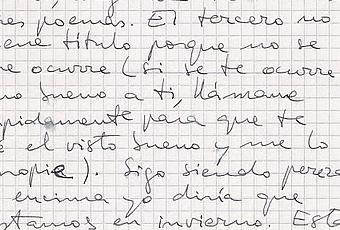 es poemas. El tercero no
ene título porque no se
e ocurre (si se te ocurre
no bueno a ti, llámame
pidamente para que te
é el visto bueno y me lo
nopie). Sigo siendo pereza
encima yo diría que
stamos en invierno. Esta